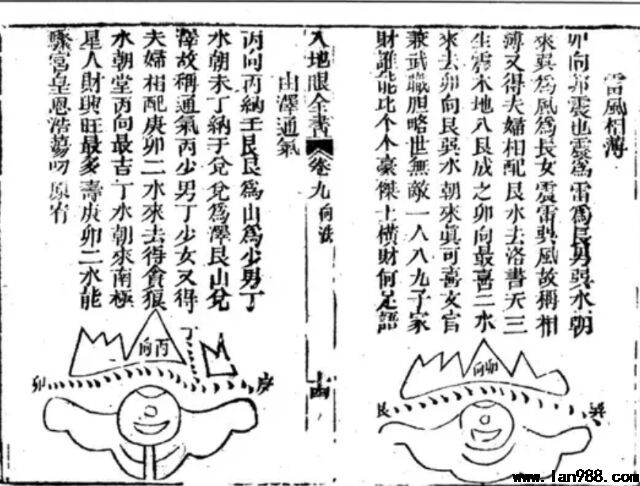 雷風相薄
卯向卯震也震爲雷爲長男巽水朝
來巽爲風爲長女震雷巽風故稱相
薄又得夫婦相配艮水去洛書天三
生震木地八艮成之卯向最喜二水
來去卯向艮巽水朝來眞可喜文官
兼武職胆略世無敵一人八九子家
財誰能比个个豪傑士橫財何足語
卯向
巽
艮
入地眼全書 卷九 向法
十四
山澤通氣
丙向丙納壬艮艮爲山爲少男丁
水朝未丁納于兌兌爲澤艮山兌
澤故稱通氣丙少男丁少女又得
夫婦相配庚卯二水來去得貪狼
水朝堂丙向最吉丁水朝來南極
星人財興旺最多壽庚卯二水能
宮皇恩浩蕩叨原宥
丙向
丁
庚
卯
www.lan988.com